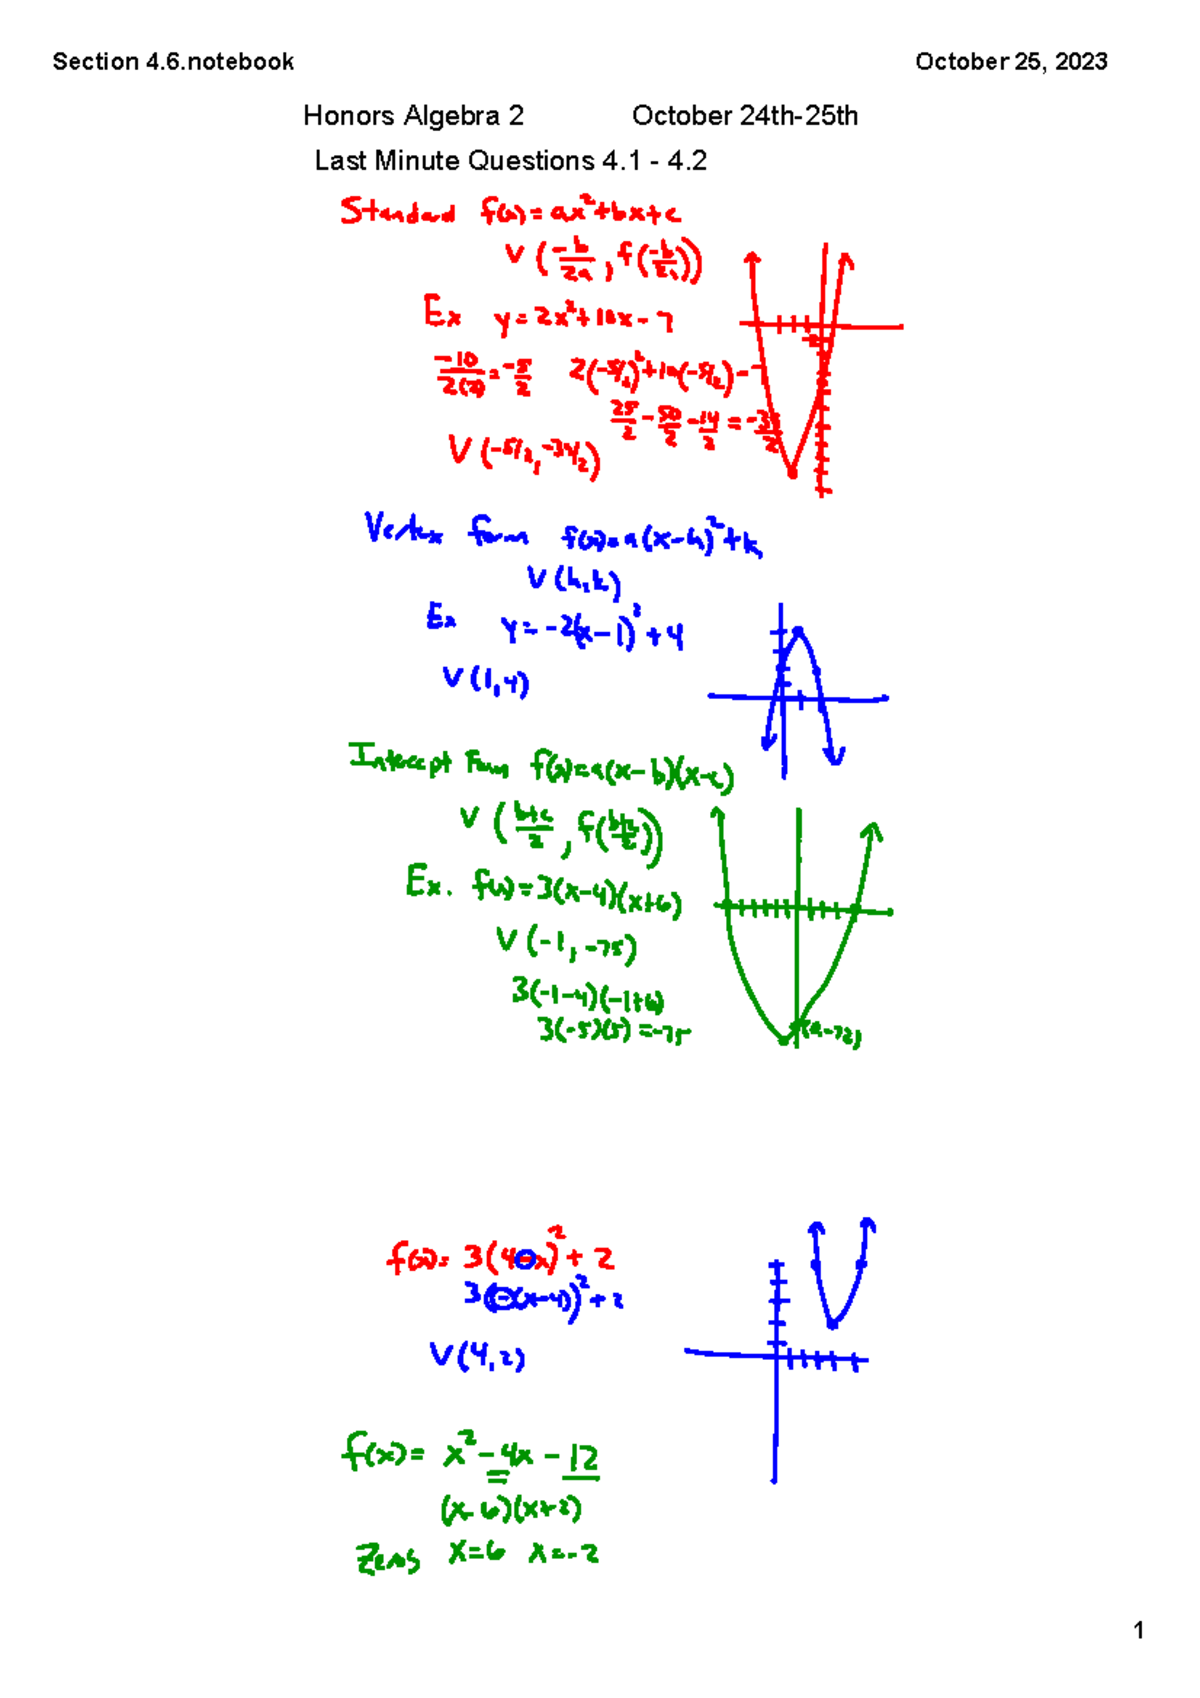 Section 4.6.notebook
October 25, 2023
Honors Algebra 2 October 24th-25th
Last Minute Questions 4.1 - 4.2
Standard f(x)=ax²+bx+c
V(-b/2a, f(-b/2a))
Ex y=2x²+10x-7
-10/2(2)=-5/2 2(-5/2)²+10(-5/2)-7
25/2-50/2-14/2=-39/2
V(-5/2,-39/2)
Vertex Form f(x)=a(x-h)²+k
V(h,k)
Ex y=-2(x-1)²+4
V(1,4)
Intercept Form f(x)=a(x-b)(x-c)
V(b+c/2, f(b+c/2))
Ex. f(x)=3(x-4)(x+6)
V(-1,-75)
3(-1-4)(-1+6)
3(-5)(5)=-75
(0,-72)
f(x)=3(4-x)²+2
3(-(x-4))²+2
V(4,2)
f(x)=x²-4x-12
(x-6)(x+2)
Zeros x=6 x=-2
1